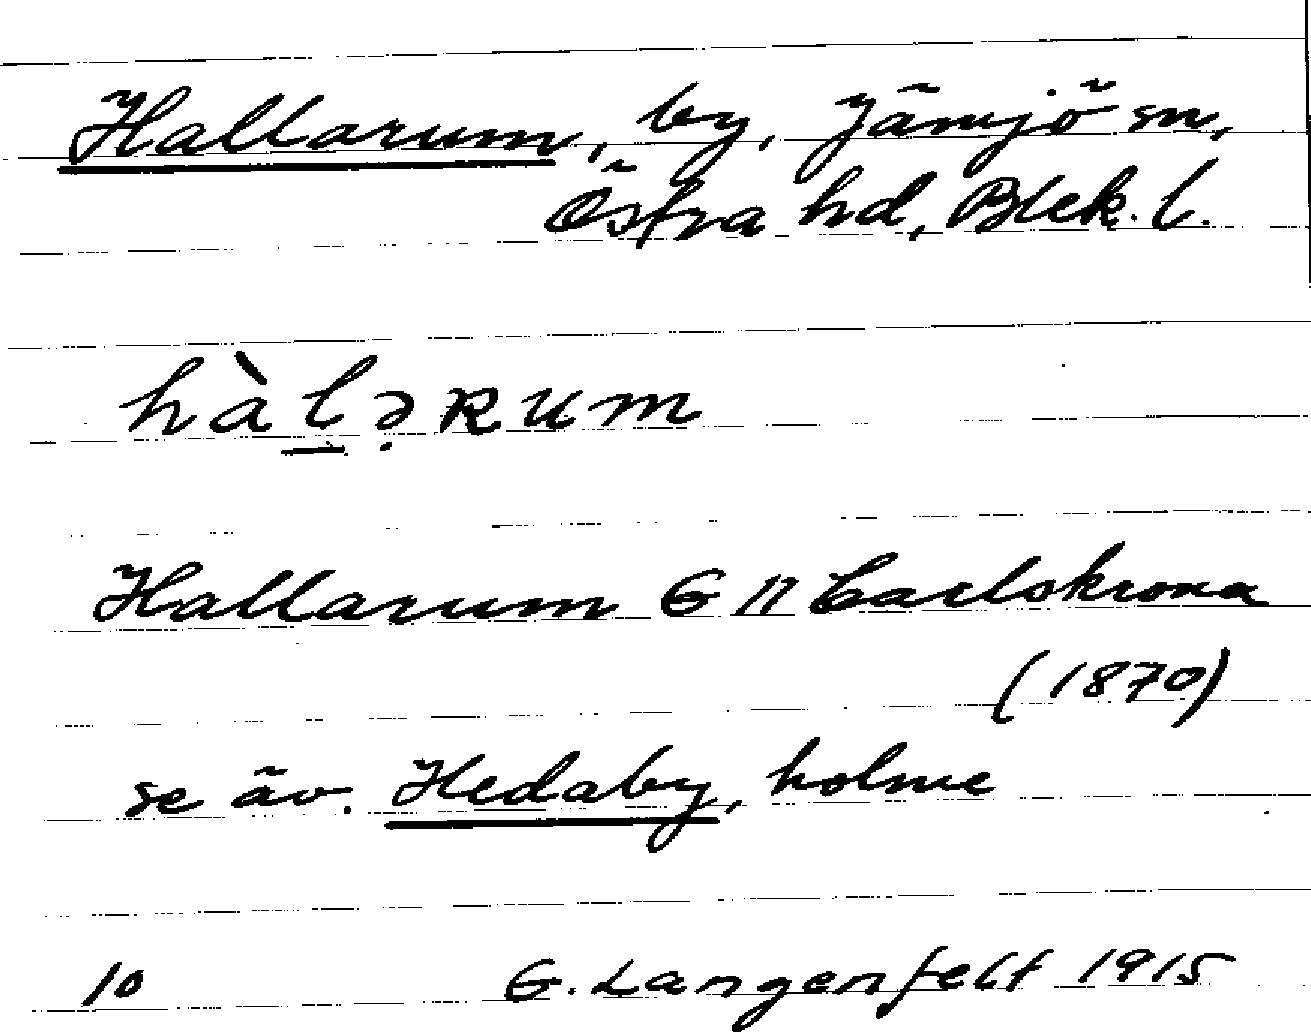 Hallarum, by, Jämjö sn,
Östra hd, Blek. l.
hàl̠ə̣ʀum
Hallarum G II Carlskrona
(1870)
se äv. Hedaby, holme
10 G. Langenfelt 1915